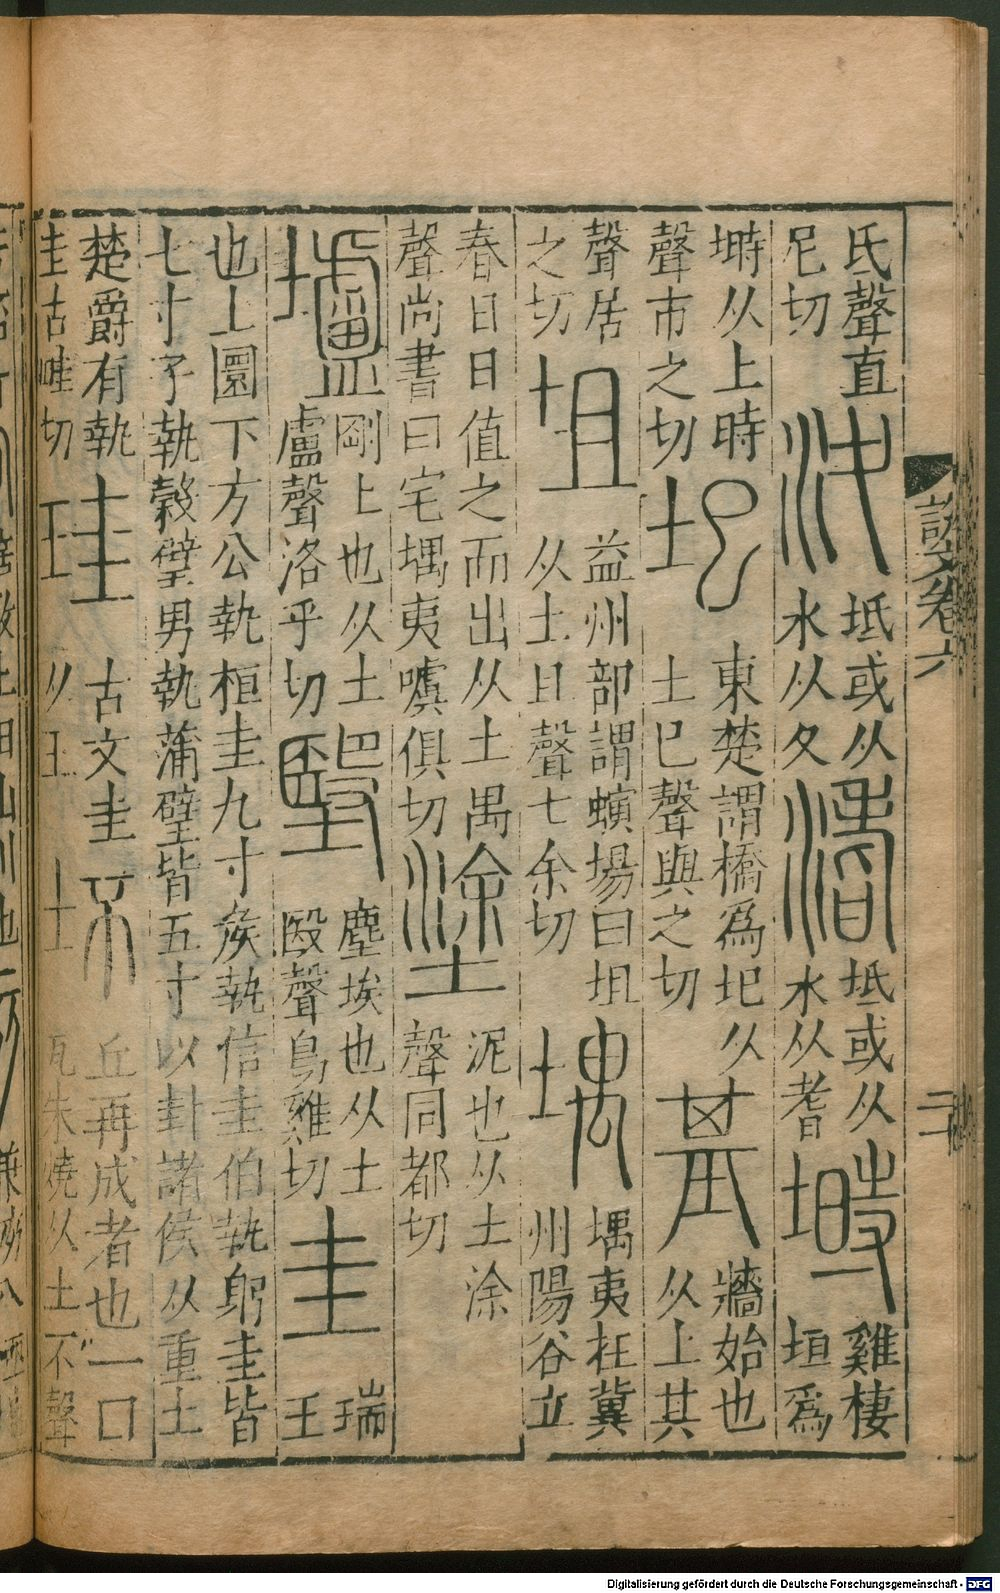 說文卷六
氏聲直尼切 汷 坻或从水从夂 渚 坻或从水从耆 塒 雞棲垣爲
塒从上時聲市之切 圯 東楚謂橋爲圯从土巳聲與之切 基 牆始也从上其
聲居之切 坥 益州部謂螾場曰坥从土且聲七余切 堣 堣夷在冀州陽谷立
春日日值之而出从土禺聲尚書曰宅堣夷噳俱切 塗 泥也从土涂聲同都切
壚 剛上也从土盧聲洛乎切 㙠 塵埃也从土殹聲烏雞切 圭 瑞玉
也上圜下方公執桓圭九寸矦執信圭伯執躬圭皆七寸子執穀璧男執蒲璧皆五寸以封諸侯从重土
楚爵有執圭古畦切 珪 古文圭从玉 坏 丘再成者也一曰瓦未燒从土不聲
Digitalisierung gefördert durch die Deutsche Forschungsgemeinschaft - DFG